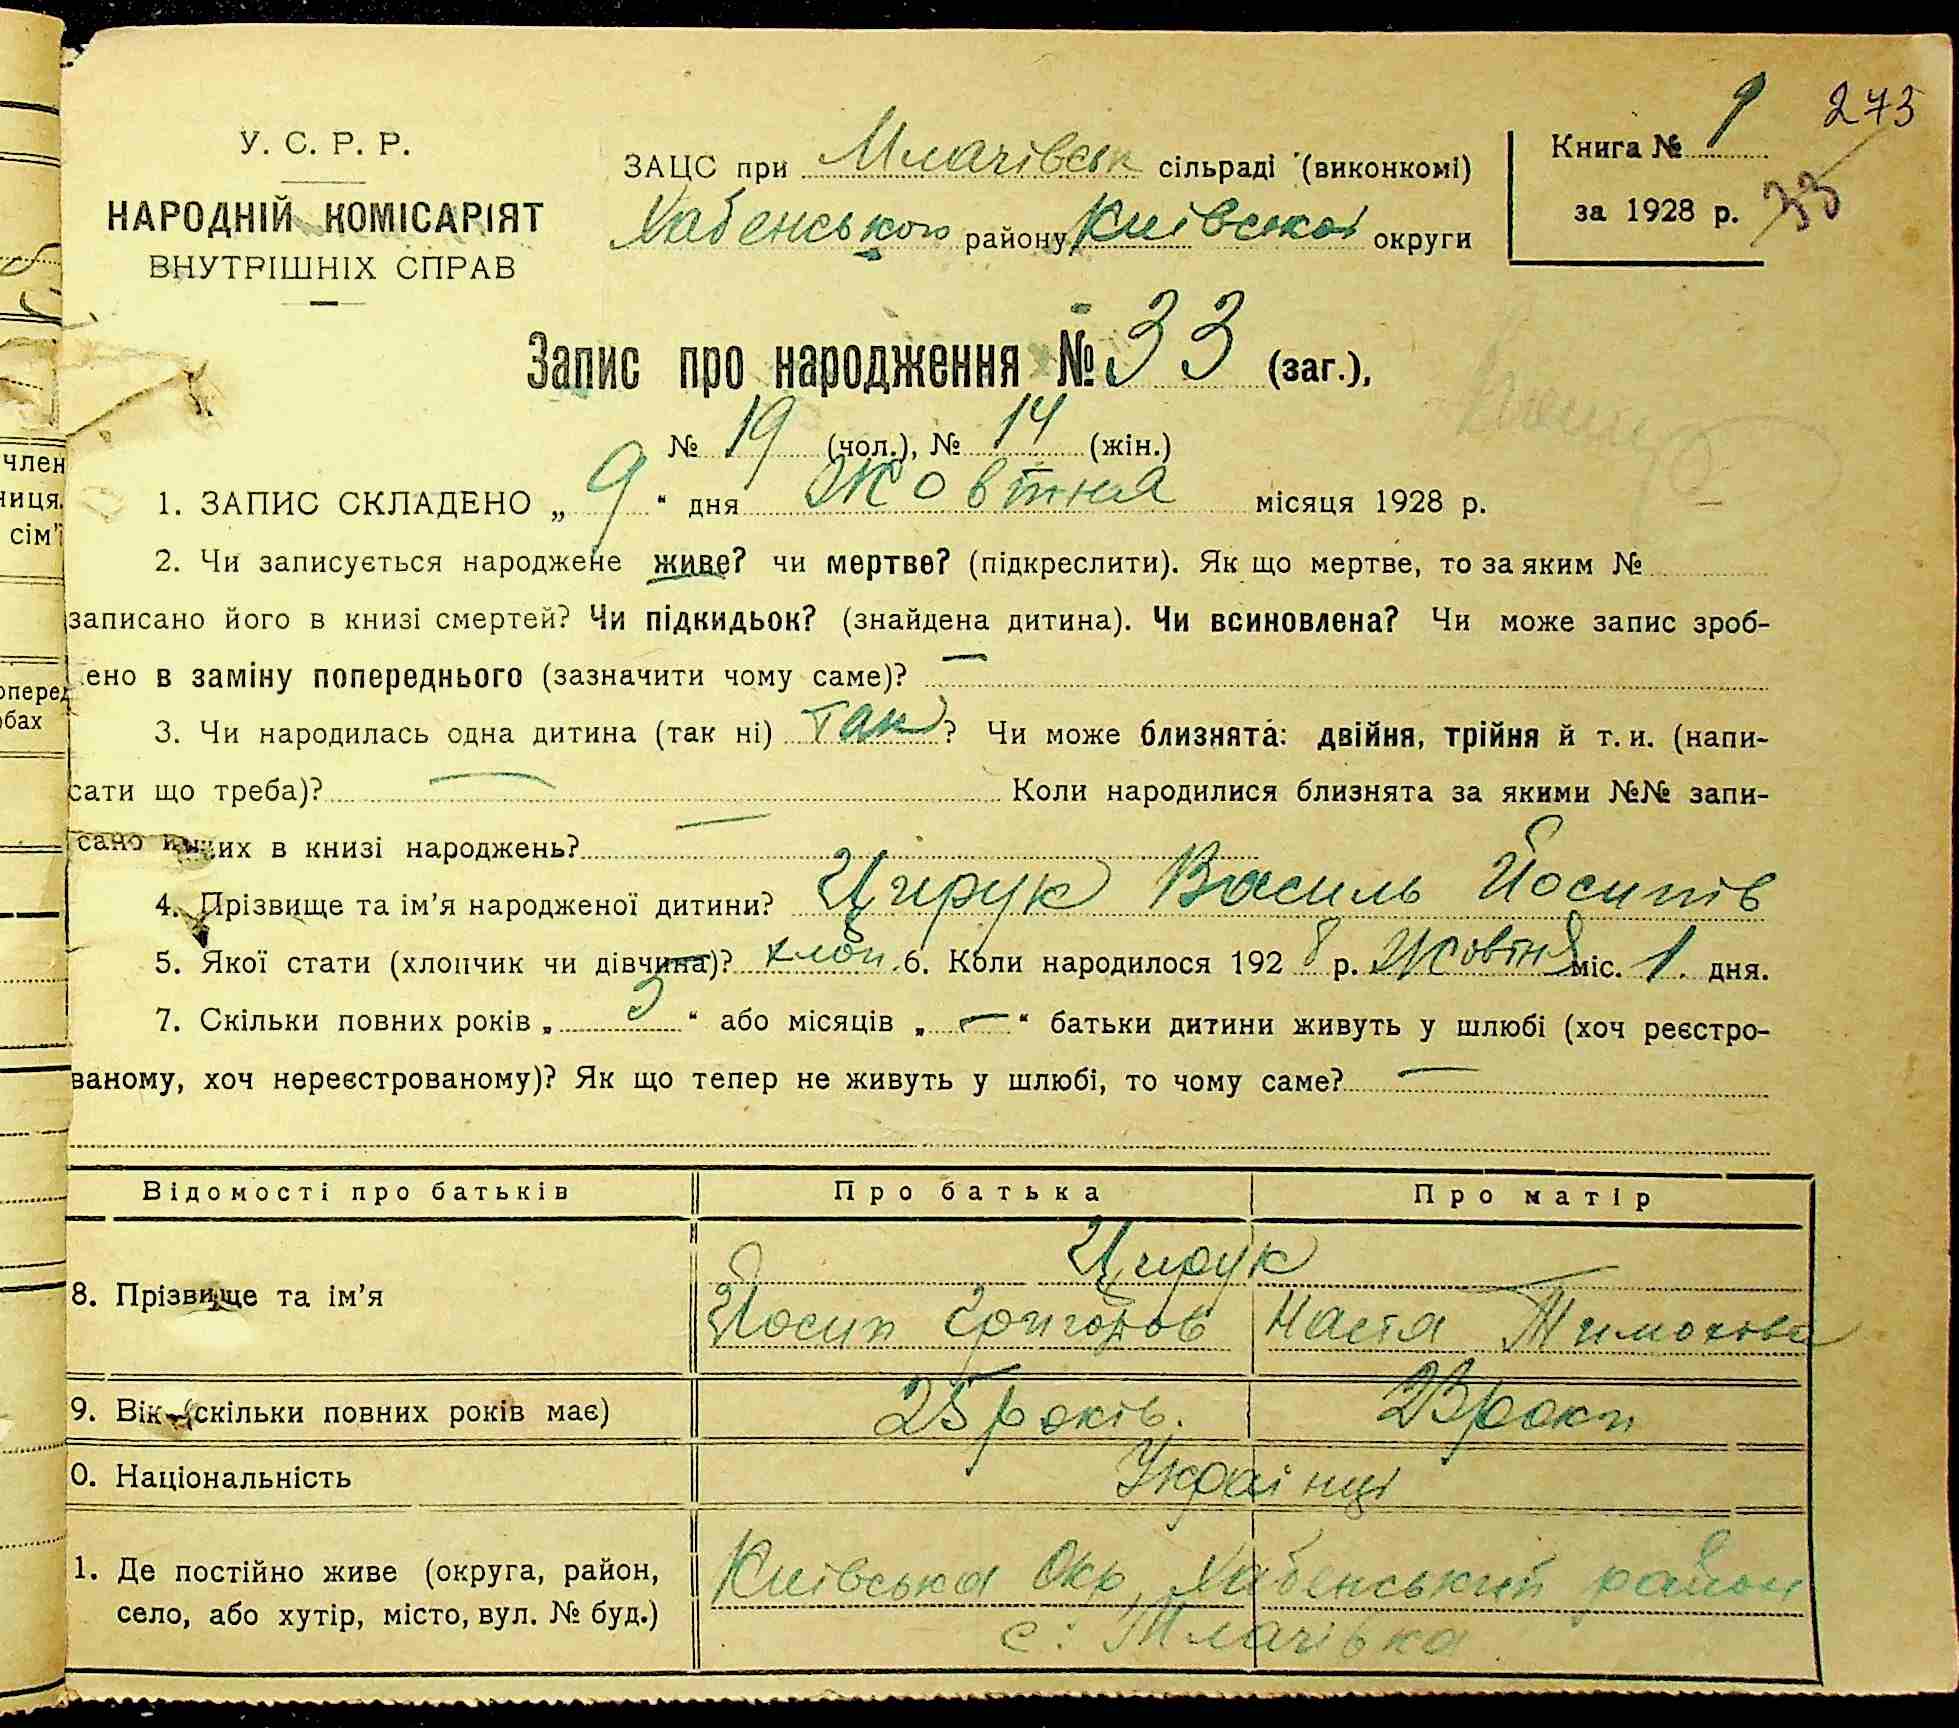 273
У. С. Р. Р.
НАРОДНІЙ КОМІСАРІЯТ
ВНУТРІШНІХ СПРАВ
ЗАЦС при Млачівськ сільраді (виконкомі)
Хабенського району Київської округи
Книга № 1
за 1928 р.
33
Запис про народження № 33 (заг.),
№ 19 (чол.), № 14 (жін.)
1. ЗАПИС СКЛАДЕНО „ 9 “ дня Жовтня місяця 1928 р.
2. Чи записується народжене живе? чи мертве? (підкреслити). Як що мертве, то за яким №
записано його в книзі смертей? Чи підкидьок? (знайдена дитина). Чи всиновлена? Чи може запис зроб-
ено в заміну попереднього (зазначити чому саме)? —
3. Чи народилась одна дитина (так ні) так ? Чи може близнята: двійня, трійня й т. и. (напи-
сати що треба)? — Коли народилися близнята за якими №№ запи-
сано инших в книзі народжень? —
4. Прізвище та ім’я народженої дитини? Цирук Василь Йосипів
5. Якої стати (хлопчик чи дівчина)? хлоп. 6. Коли народилося 1928 р. Жовтня міс. 1. дня.
7. Скільки повних років „ 5 “ або місяців „ — “ батьки дитини живуть у шлюбі (хоч реєстро-
ваному, хоч нереєстрованому)? Як що тепер не живуть у шлюбі, то чому саме? —
Відомості про батьків Про батька Про матір
Цирук
8. Прізвище та ім’я Йосип Григоров Настя Тимохова
9. Вік (скільки повних років має) 25 років. 23 роки
0. Національність Українці
1. Де постійно живе (округа, район, Київська Окр. Хабенський район
село, або хутір, місто, вул. № буд.) с. Млачівка
член
ниця.
сім’ї
оперед
обах